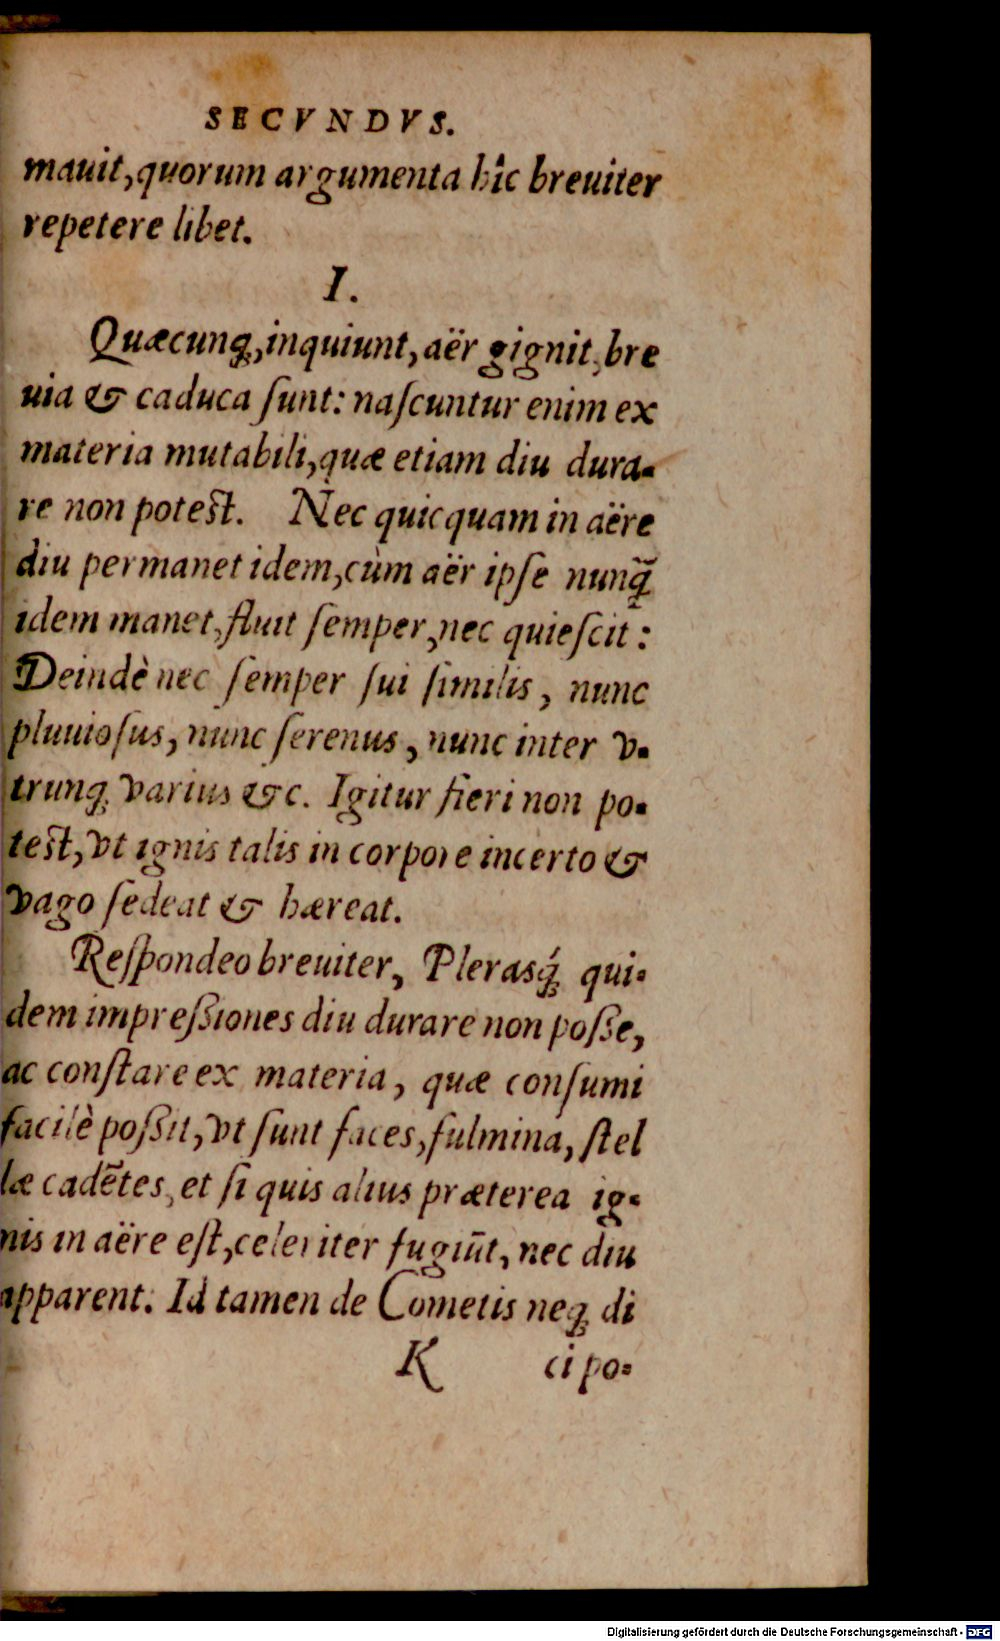 SECVNDVS.
mauit, quorum argumenta hîc breuiter
repetere libet.
I.
Quæcunq;, inquiunt, aër gignit, bre
uia & caduca ſunt: naſcuntur enim ex
materia mutabili, quæ etiam diu dura-
re non poteſt. Nec quicquam in aëre
diu permanet idem, cùm aër ipſe nunq̃
idem manet, fluit ſemper, nec quieſcit:
Deindè nec ſemper ſui ſimilis, nunc
pluuioſus, nunc ſerenus, nunc inter v-
trunq; varius &c. Igitur fieri non po-
teſt, vt ignis talis in corpore incerto &
vago ſedeat & hæreat.
Reſpondeo breuiter, Plerasq́; qui-
dem impreßiones diu durare non poſſe,
ac conſtare ex materia, quæ conſumi
facilè poßit, vt ſunt faces, fulmina, ſtel
læ cadẽtes, et ſi quis alius præterea ig-
nis in aëre eſt, celeriter fugiũt, nec diu
apparent. Id tamen de Cometis neq; di
K ci po-
Digitalisierung gefördert durch die Deutsche Forschungsgemeinschaft - DFG